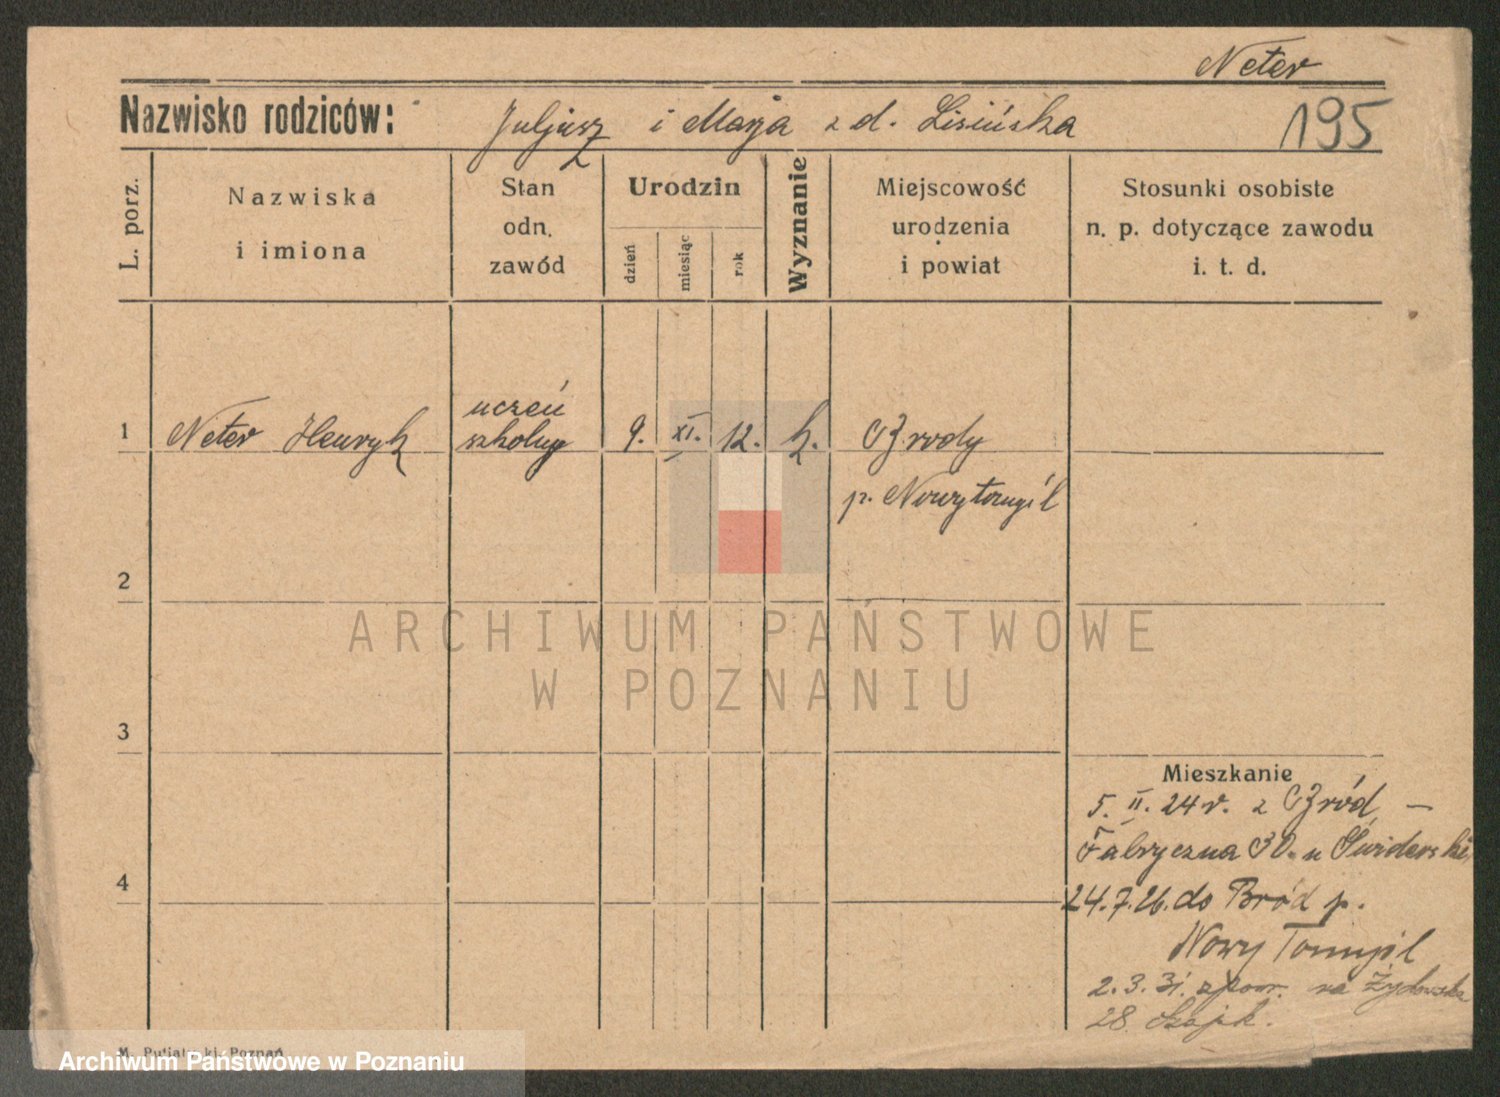 Neter
Nazwisko rodziców: Juljusz i Marja z d. Lisińska 195
L. porz.
Nazwiska
i imiona
Stan
odn.
zawód
Urodzin
dzień
miesiąc
rok
Wyznanie
Miejscowość
urodzenia
i powiat
Stosunki osobiste
n. p. dotyczące zawodu
i. t. d.
1 Neter Henryk uczeń szkolny 9. XI. 12. k. Brody
p. Nowytomyśl
2
3
4
Mieszkanie
5. II. 24 r. z Bród —
Fabryczna 30. u Świderski,
24.7.26. do Bród p.
Nowy Tomyśl
2.3.31. zpow. na Żydowska
28
ARCHIWUM PAŃSTWOWE
W POZNANIU
M. Putiatycki, Poznań
Archiwum Państwowe w Poznaniu